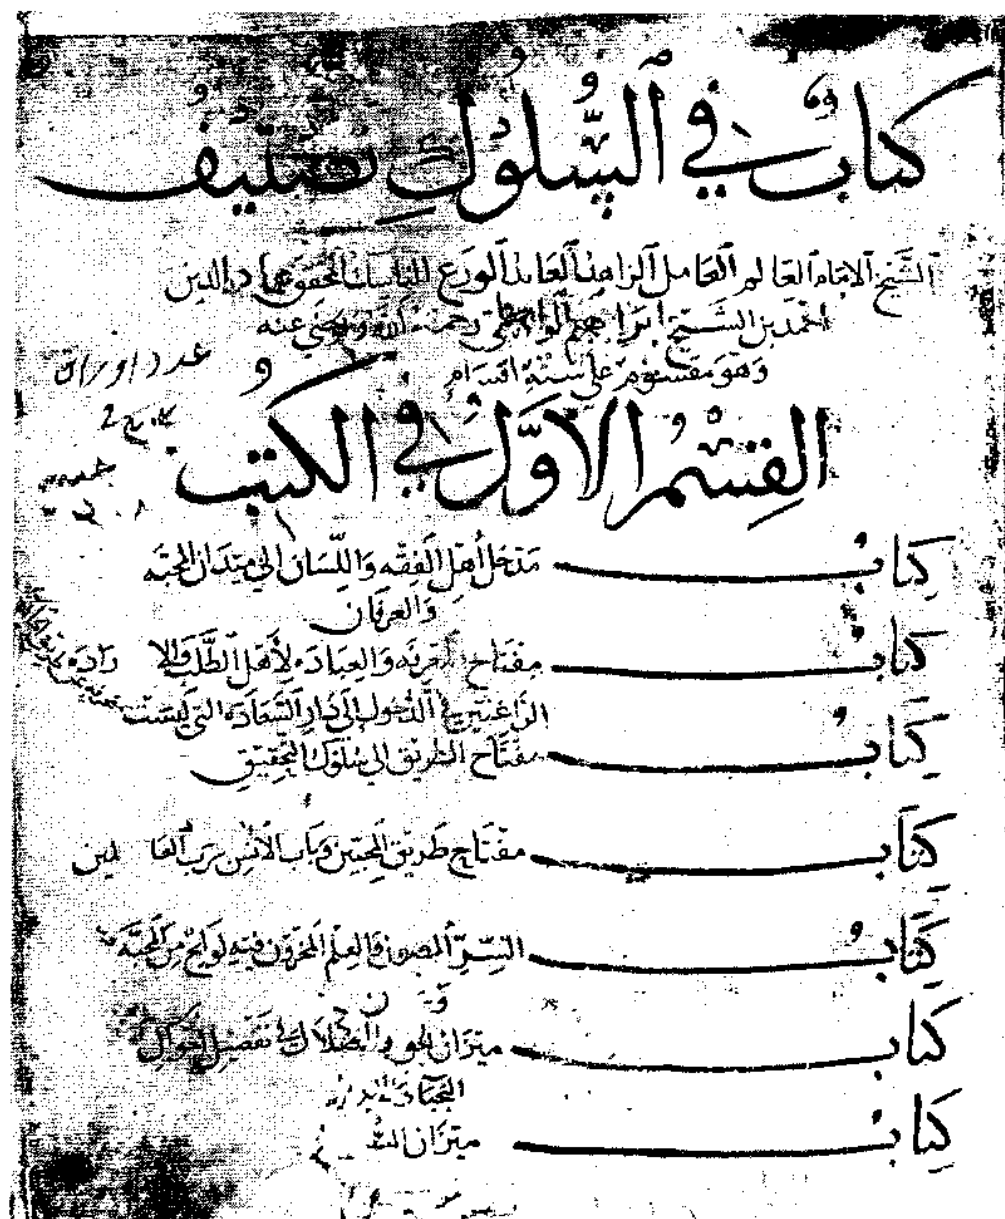 كتاب في السلوك تصنيف
الشيخ الامام العالم العامل الزاهد العابد الورع المحقق عماد الدين
احمد بن الشيخ ابراهيم الواسطي رحمه الله ورضي عنه
وهو مقسوم على ستة اقسام
عدد اوراق
القسم الأول في الكتب
كتاب مدخل أهل الفقه واللسان الى ميدان المحبة
والعرفان
كتاب مفتاح والعبادة لأهل الطلب والارادة
الراغبين في الدخول الى دار السعادة التي ليست
كتاب مفتاح الطريق الى سلوك التحقيق
كتاب مفتاح طريق المحبين وباب الأنس برب العالمين
كتاب السر المصون والعلم المخزون فيه لوائح من المحبة
كتاب ميزان الحق والضلال في تفصيل أحوال
كتاب ميزان